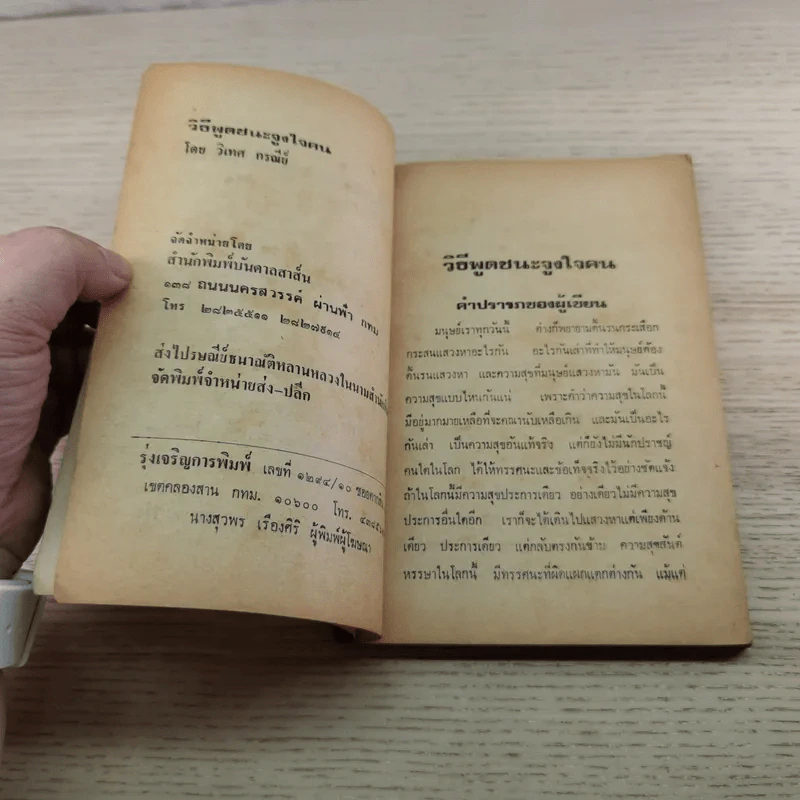 วิธีพูดชนะจูงใจคน
โดย วิเทศ กรณีย์
จัดจำหน่ายโดย
สำนักพิมพ์บันดาลสาส์น
๑๓๘ ถนนนครสวรรค์ ผ่านฟ้า กทม
โทร ๒๘๒๕๕๑๑ ๒๘๒๗๙๑๔
ส่งไปรษณีย์ธนาณัติหลานหลวงในนาม
จัดพิมพ์จำหน่ายส่ง-ปลีก
รุ่งเจริญการพิมพ์ เลขที่ ๑๒๙๔/๑๐
เขตคลองสาน กทม. ๑๐๖๐๐ โทร.
นางสุวพร เรืองศิริ ผู้พิมพ์ผู้โฆษณา
วิธีพูดชนะจูงใจคน
คำปรารภของผู้เขียน
มนุษย์เราทุกวันนี้ ต่างก็พยายามดิ้นรนกระเสือก
กระสนแสวงหาอะไรกัน อะไรกันเล่าที่ทำให้มนุษย์ต้อง
ดิ้นรนแสวงหา และความสุขที่มนุษย์แสวงหามัน มันเป็น
ความสุขแบบไหนกันแน่ เพราะคำว่าความสุขในโลกนี้
มีอยู่มากมายเหลือที่จะคณานับเหลือเกิน และมันเป็นอะไร
กันเล่า เป็นความสุขอันแท้จริง แต่ก็ยังไม่มีนักปราชญ์
คนใดในโลก ได้ให้ทรรศนะและข้อเท็จจริงไว้อย่างชัดแจ้ง
ถ้าในโลกนี้มีความสุขประการเดียว อย่างเดียวไม่มีความสุข
ประการอื่นใดอีก เราก็จะได้เดินไปแสวงหาแต่เพียงด้าน
เดียว ประการเดียว แต่กลับตรงกันข้าม ความสุขสันต์
หรรษาในโลกนี้ มีทรรศนะที่ผิดแผกแตกต่างกัน แม้แต่